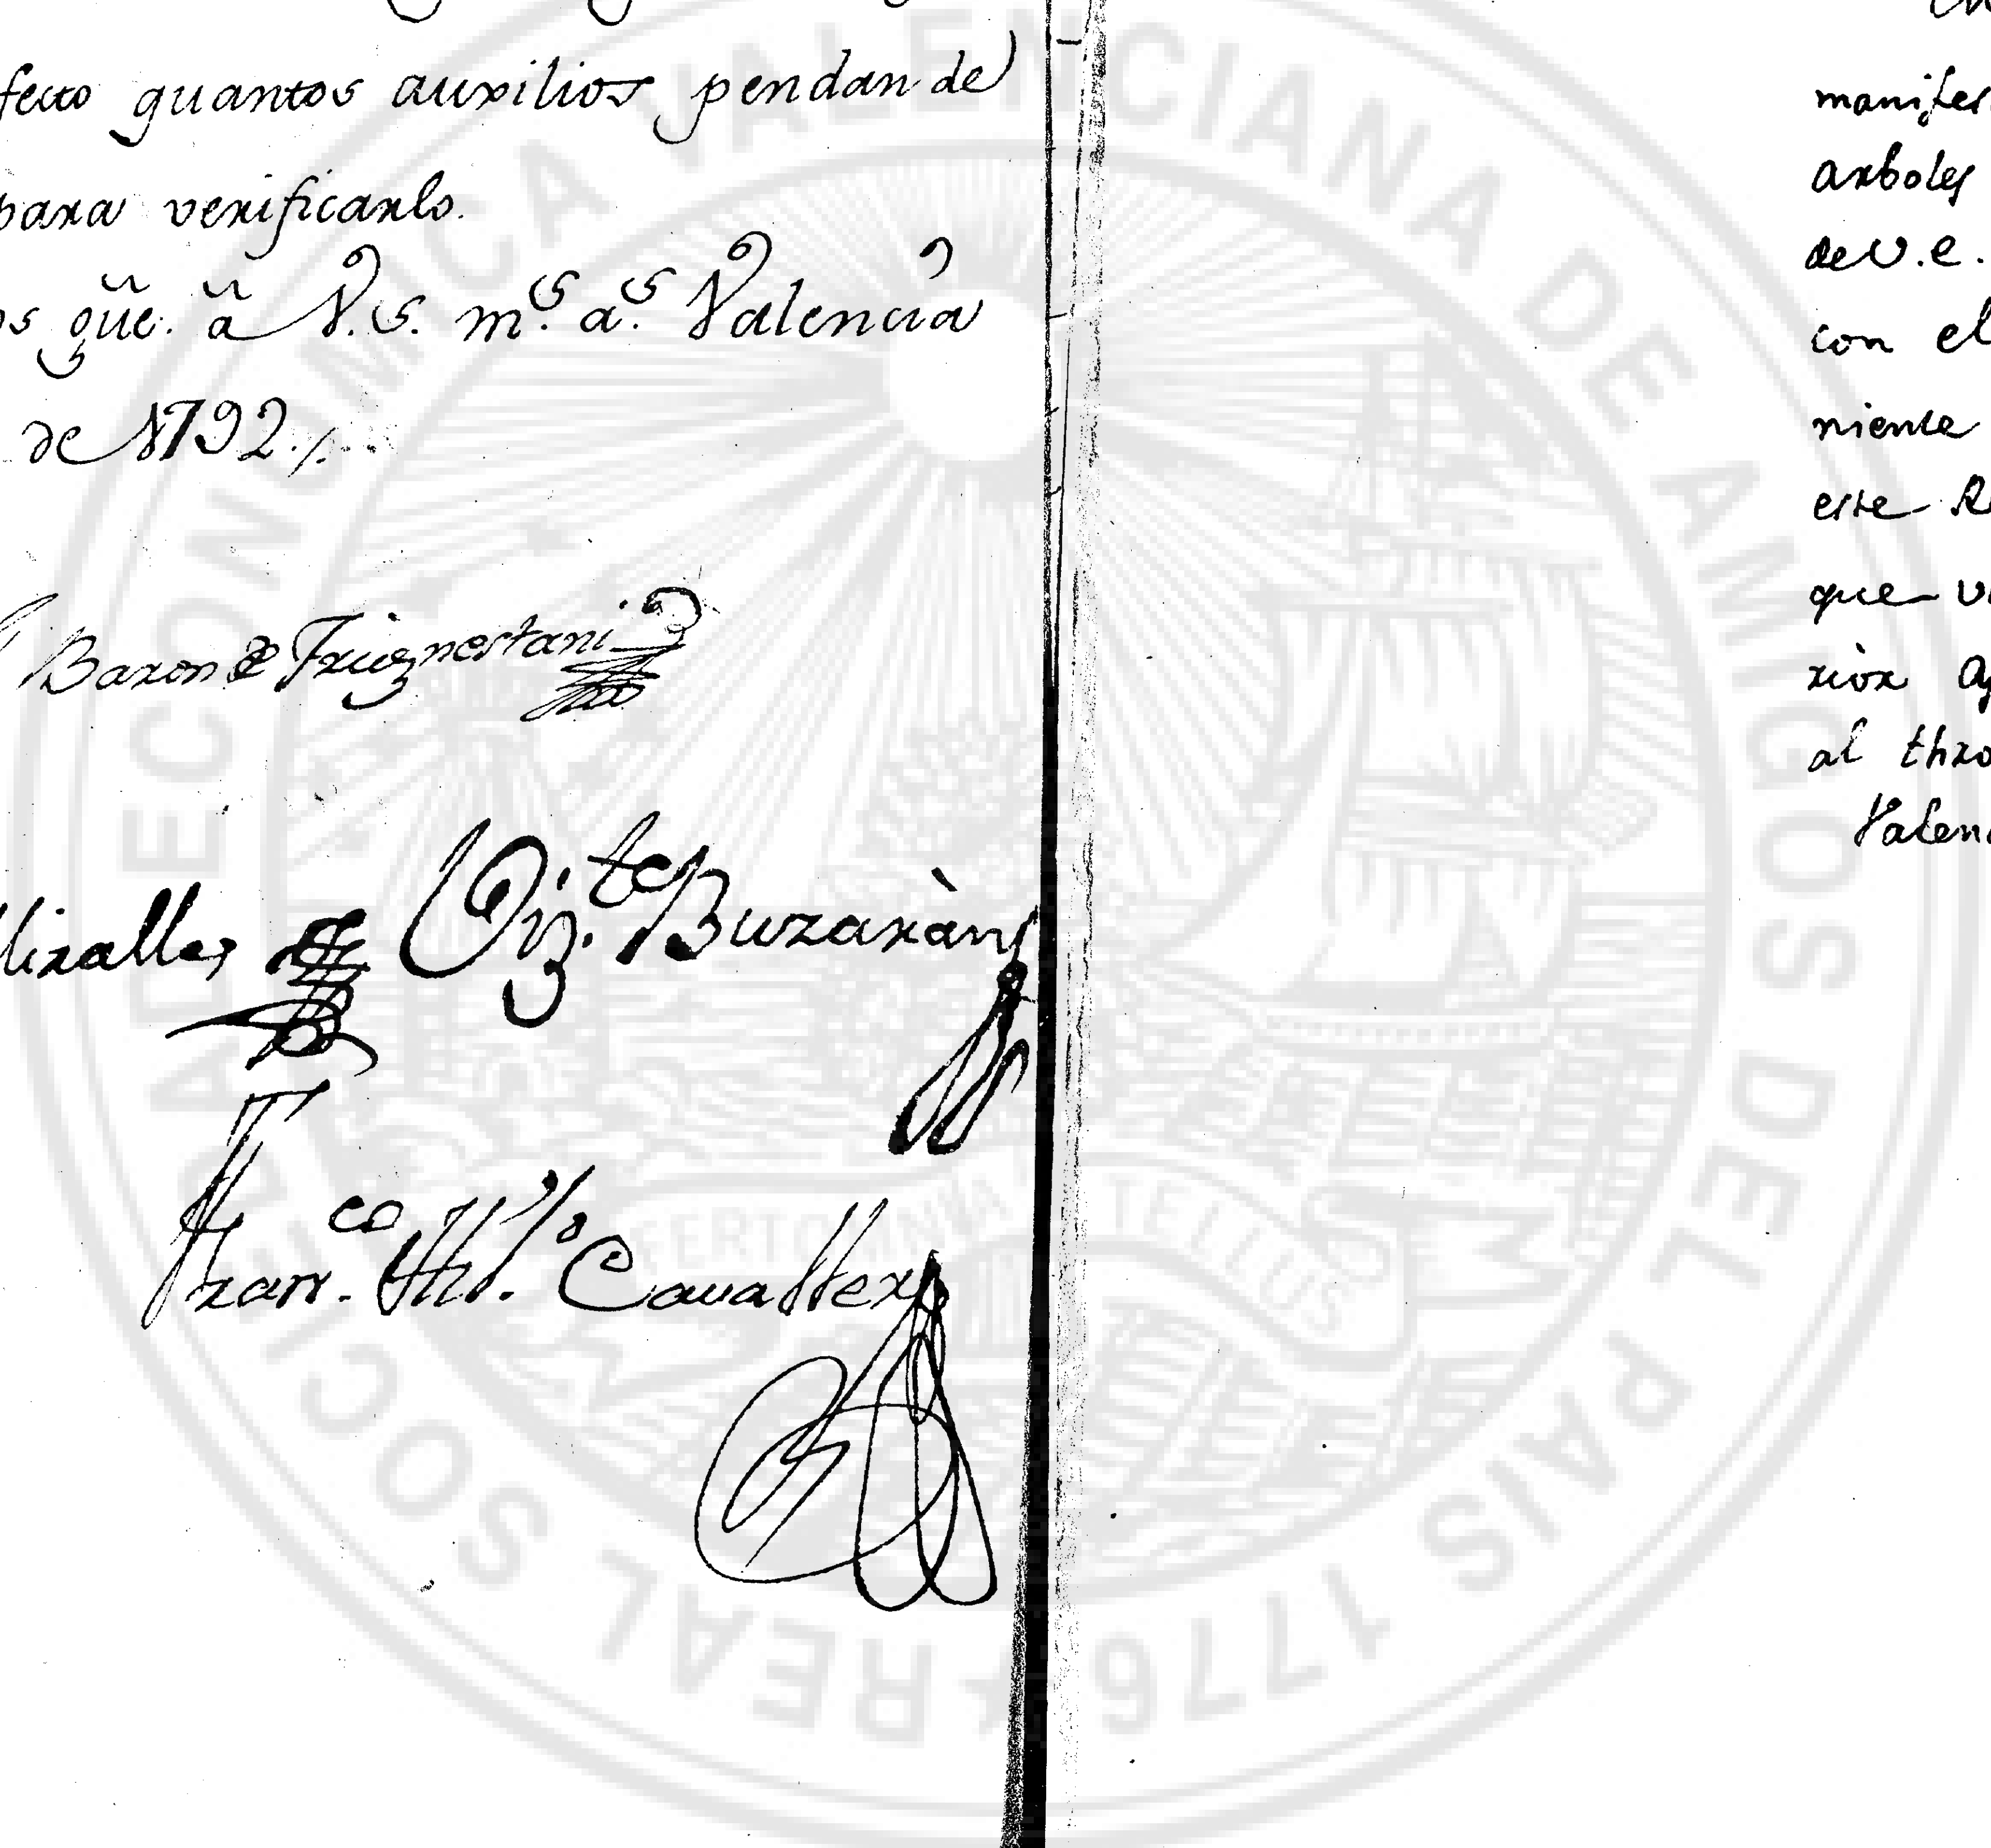 fecto quantos auxilios pendan de
para verificarlo.
os gũe. ã V.S. m.s a.s Valencia
de 1792.
Baron de Frignestani
Miralles Viz.te Buzaràn
Fran.co Ml.o Cavaller
manifes
arboles
de V.E.
con el
niente
este R
que v
rior
al thro
Valen
REAL SOCIEDAD ECONOMICA VALENCIANA DE AMIGOS DEL PAIS 1776